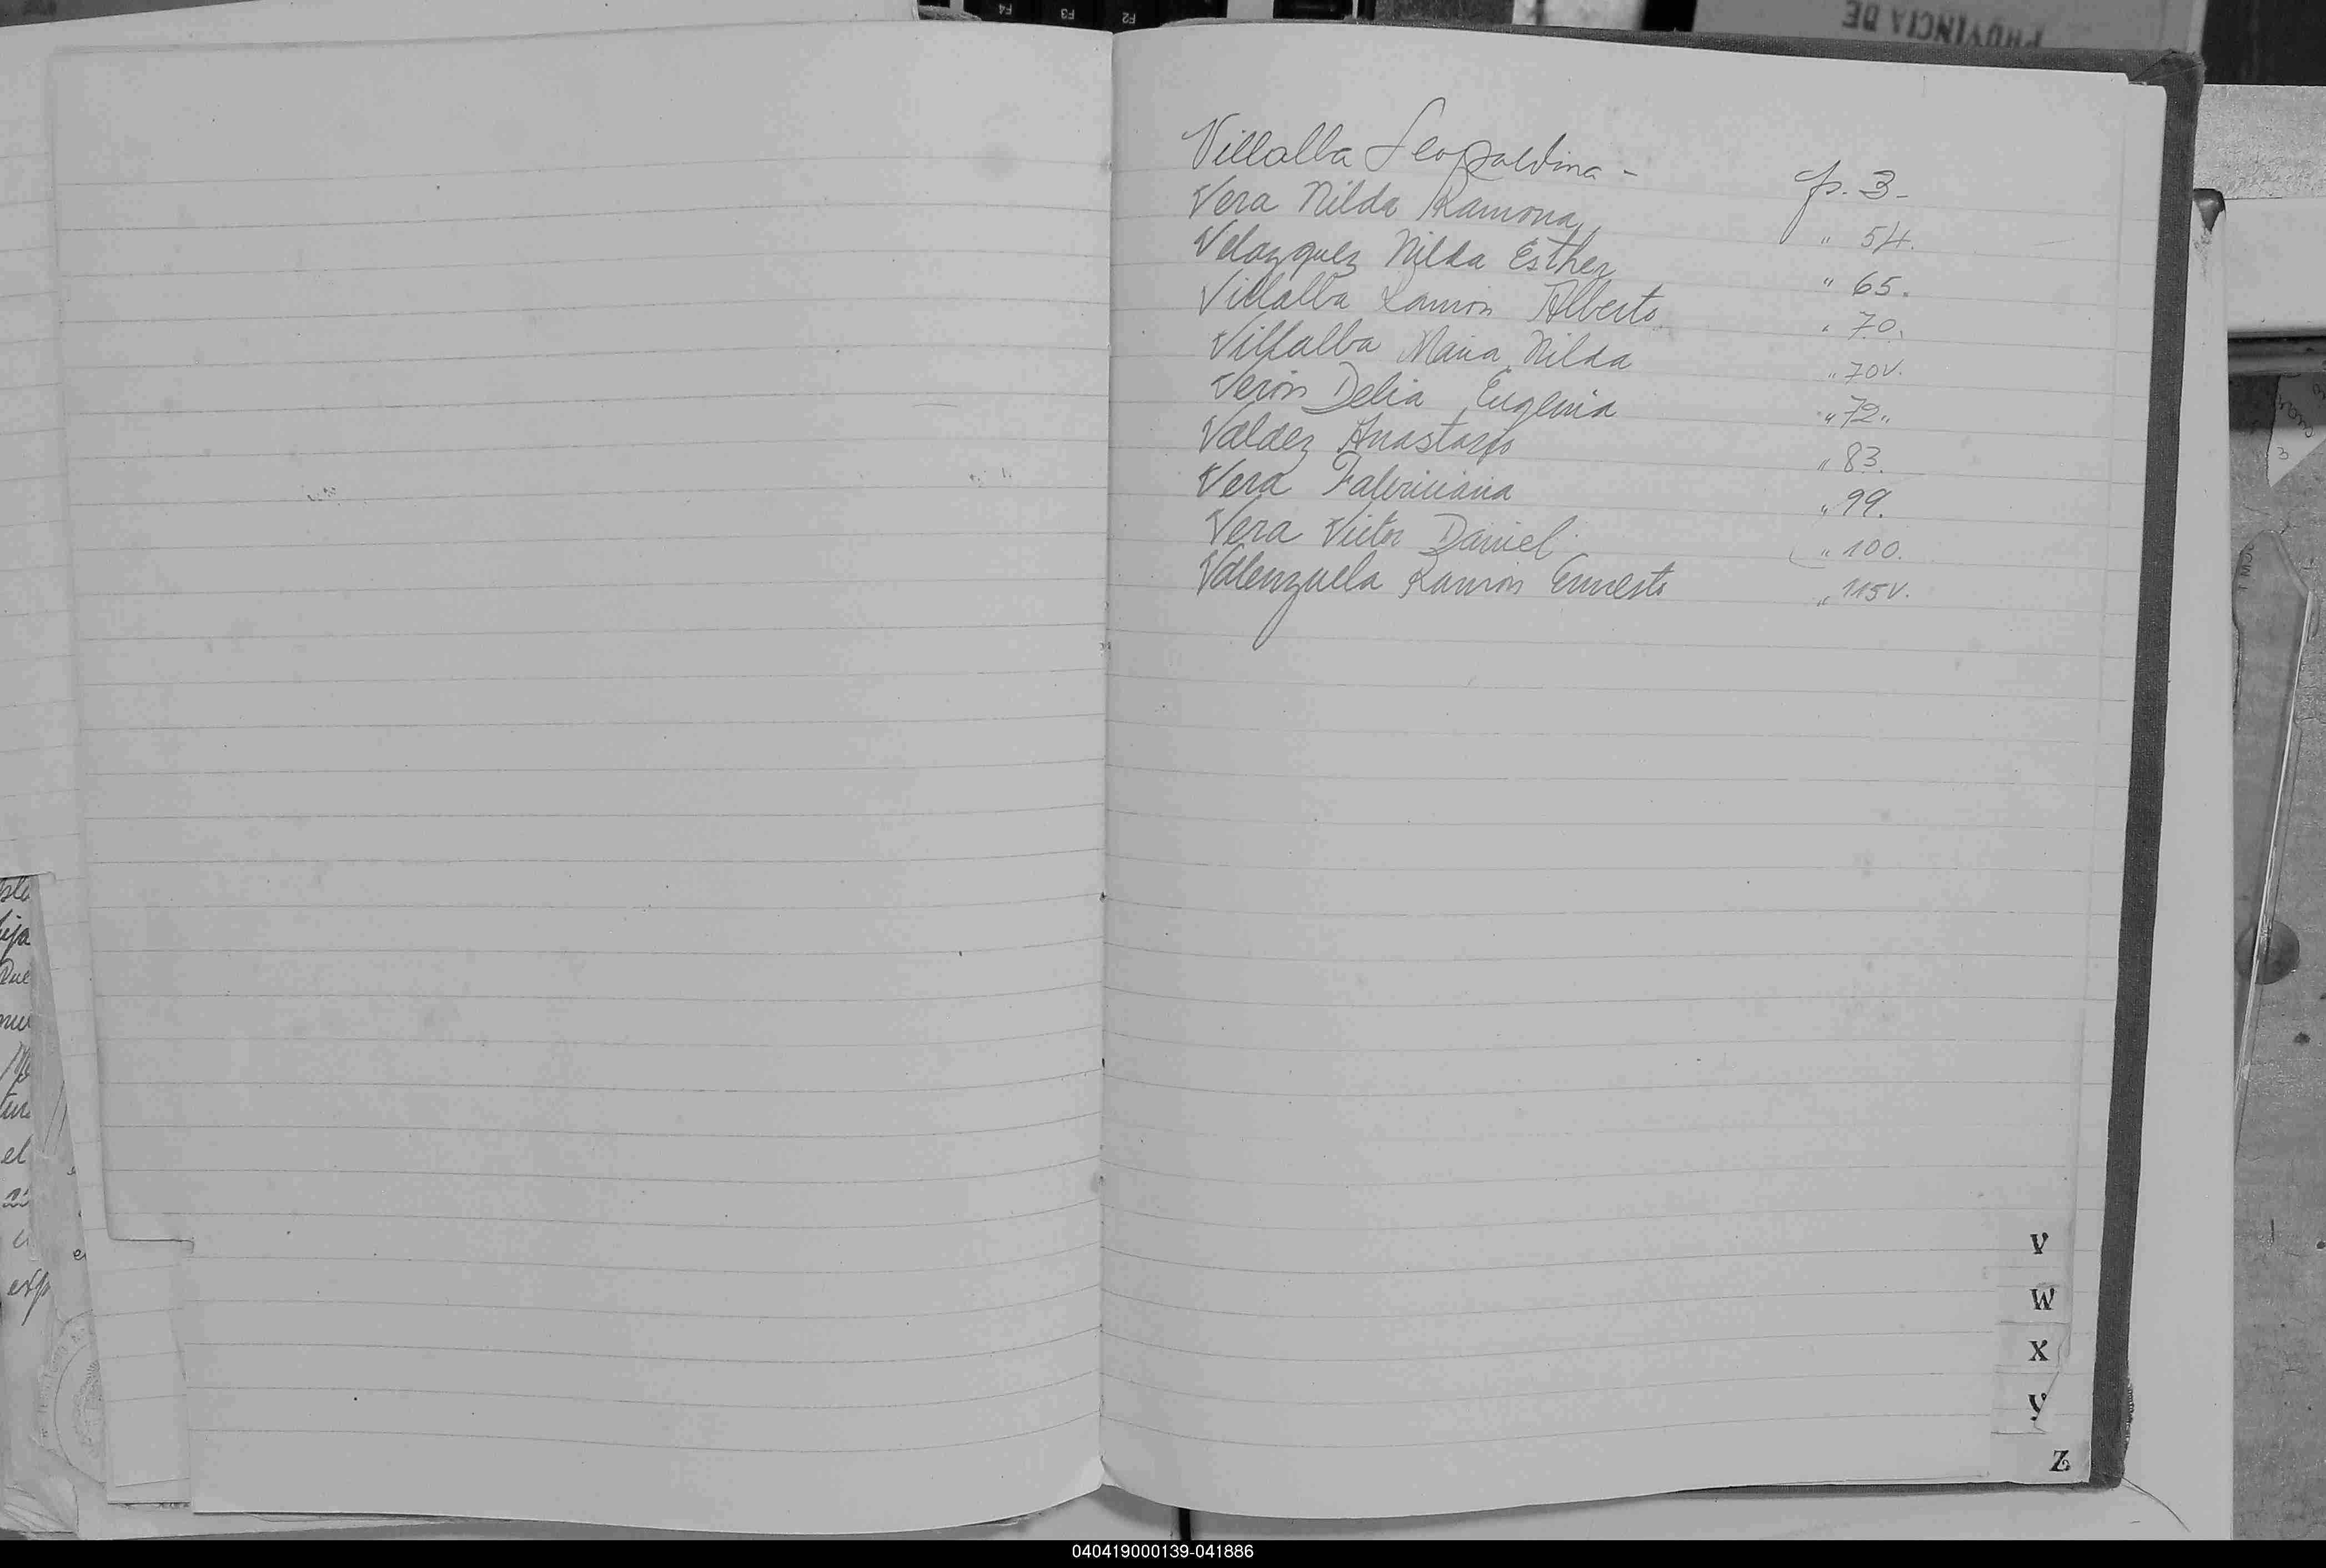 PROVINCIA DE
F4 F3 F2
Villalba Leopoldina - p. 3-
Vera Nilda Ramona " 54.
Velazquez Nilda Esther " 65.
Villalba Ramón Alberto " 70.
Villalba Maria Nilda " 70v.
Verón Delia Eugenia " 72"
Valdez Anastasio " 83.
Vera " 99.
Vera Victor Daniel " 100.
Valenzuela Ramón Ernesto " 115v.
V
W
X
Y
Z
040419000139-041886